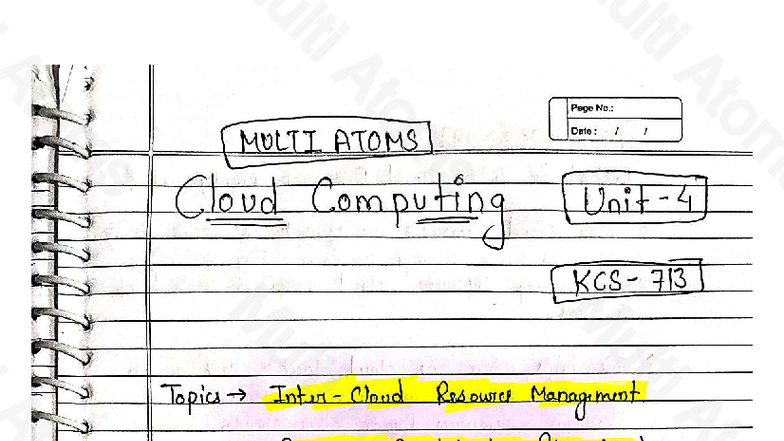 Page No.:
Date : / /
MULTI ATOMS
Cloud Computing Unit - 4
KCS - 713
Topics → Inter - Cloud Resource Management
Multi Atoms